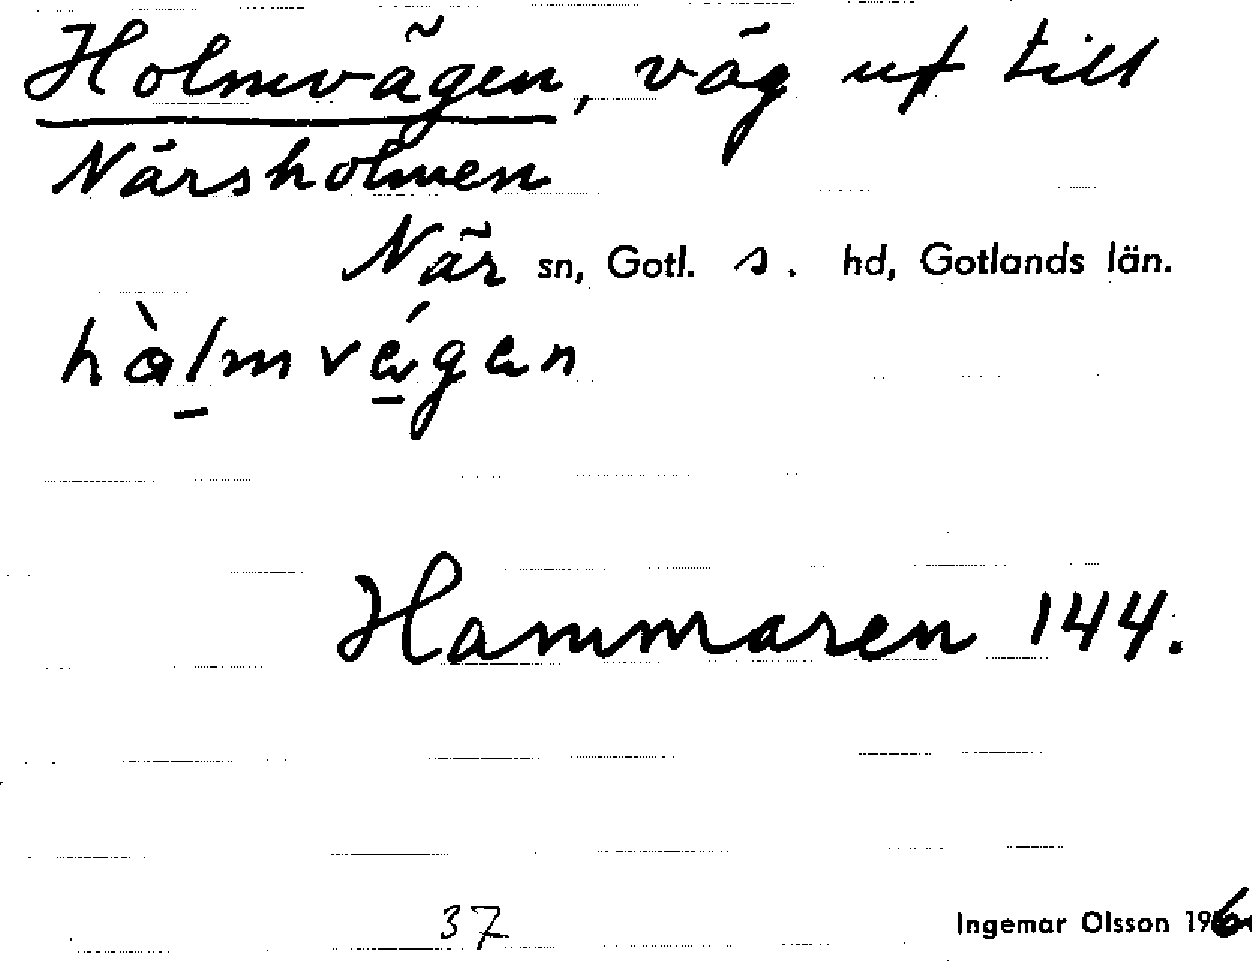 Holmvägen, väg ut till
Närsholmen
När sn, Gotl. s. hd, Gotlands län.
hàlmvégen
Hammaren 144.
37
Ingemar Olsson 196